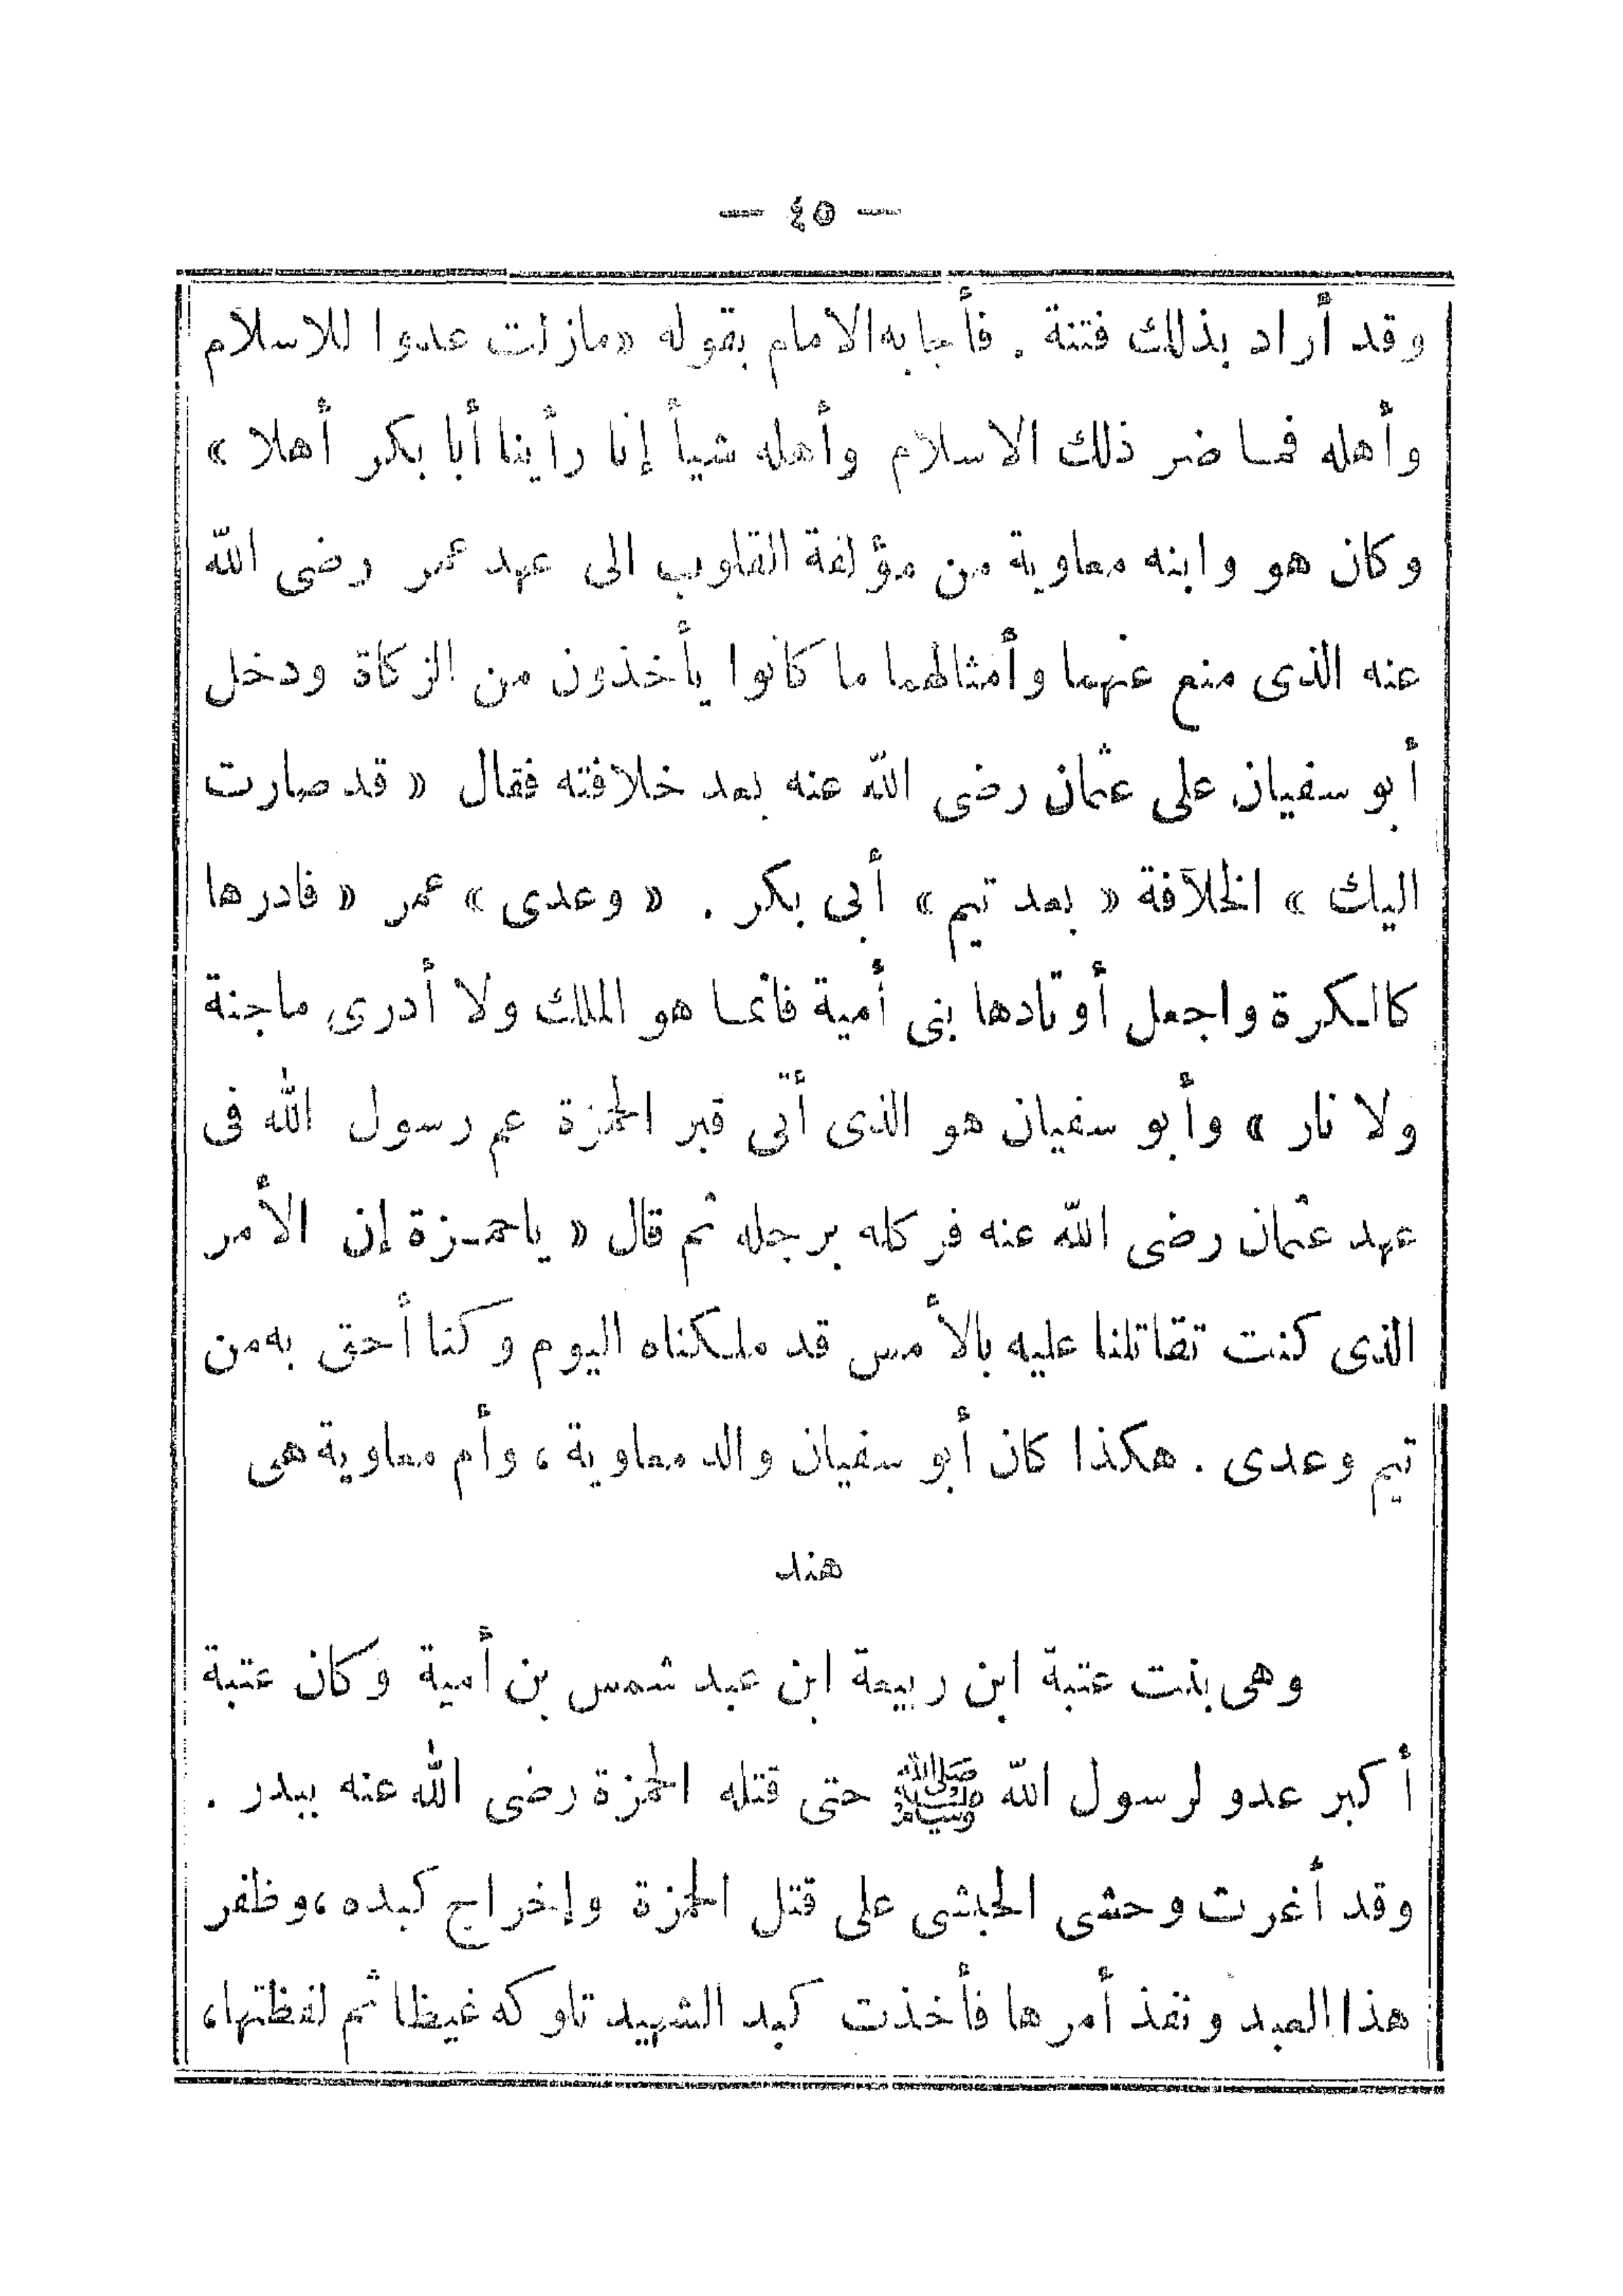 — ٤٥ —
وقد أراد بذلك فتنة . فأجابه الامام بقوله «مازلت عدوا للاسلام
وأهله فما ضر ذلك الاسلام وأهله شيأ إنا رأينا أبا بكر أهلا »
وكان هو وابنه معاوية من مؤلفة القلوب الى عهد عمر رضى الله
عنه الذى منع عنهما وأمثالهما ما كانوا يأخذون من الزكاة ودخل
أبو سفيان على عثمان رضى الله عنه بعد خلافته فقال « قد صارت
اليك » الخلآفة « بعد تيم » أبى بكر . « وعدى » عمر « فادرها
كالكرة واجعل أوتادها بنى أمية فانما هو الملك ولا أدرى ماجنة
ولا نار » وأبو سفيان هو الذى أتى قبر الحمزة عم رسول الله فى
عهد عثمان رضى الله عنه فركله برجله ثم قال « ياحمزة إن الأمر
الذى كنت تقاتلنا عليه بالأمس قد ملكناه اليوم وكنا أحق به من
تيم وعدى . هكذا كان أبو سفيان والد معاوية ، وأم معاوية هى
هند
وهى بنت عتبة ابن ربيعة ابن عبد شمس بن أمية وكان عتبة
أكبر عدو لرسول الله ﷺ حتى قتله الحمزة رضى الله عنه ببدر .
وقد أغرت وحشى الحبشى على قتل الحمزة وإخراج كبده ، وظفر
هذا العبد ونفذ أمرها فأخذت كبد الشهيد تلوكه غيظا ثم لفظتها،